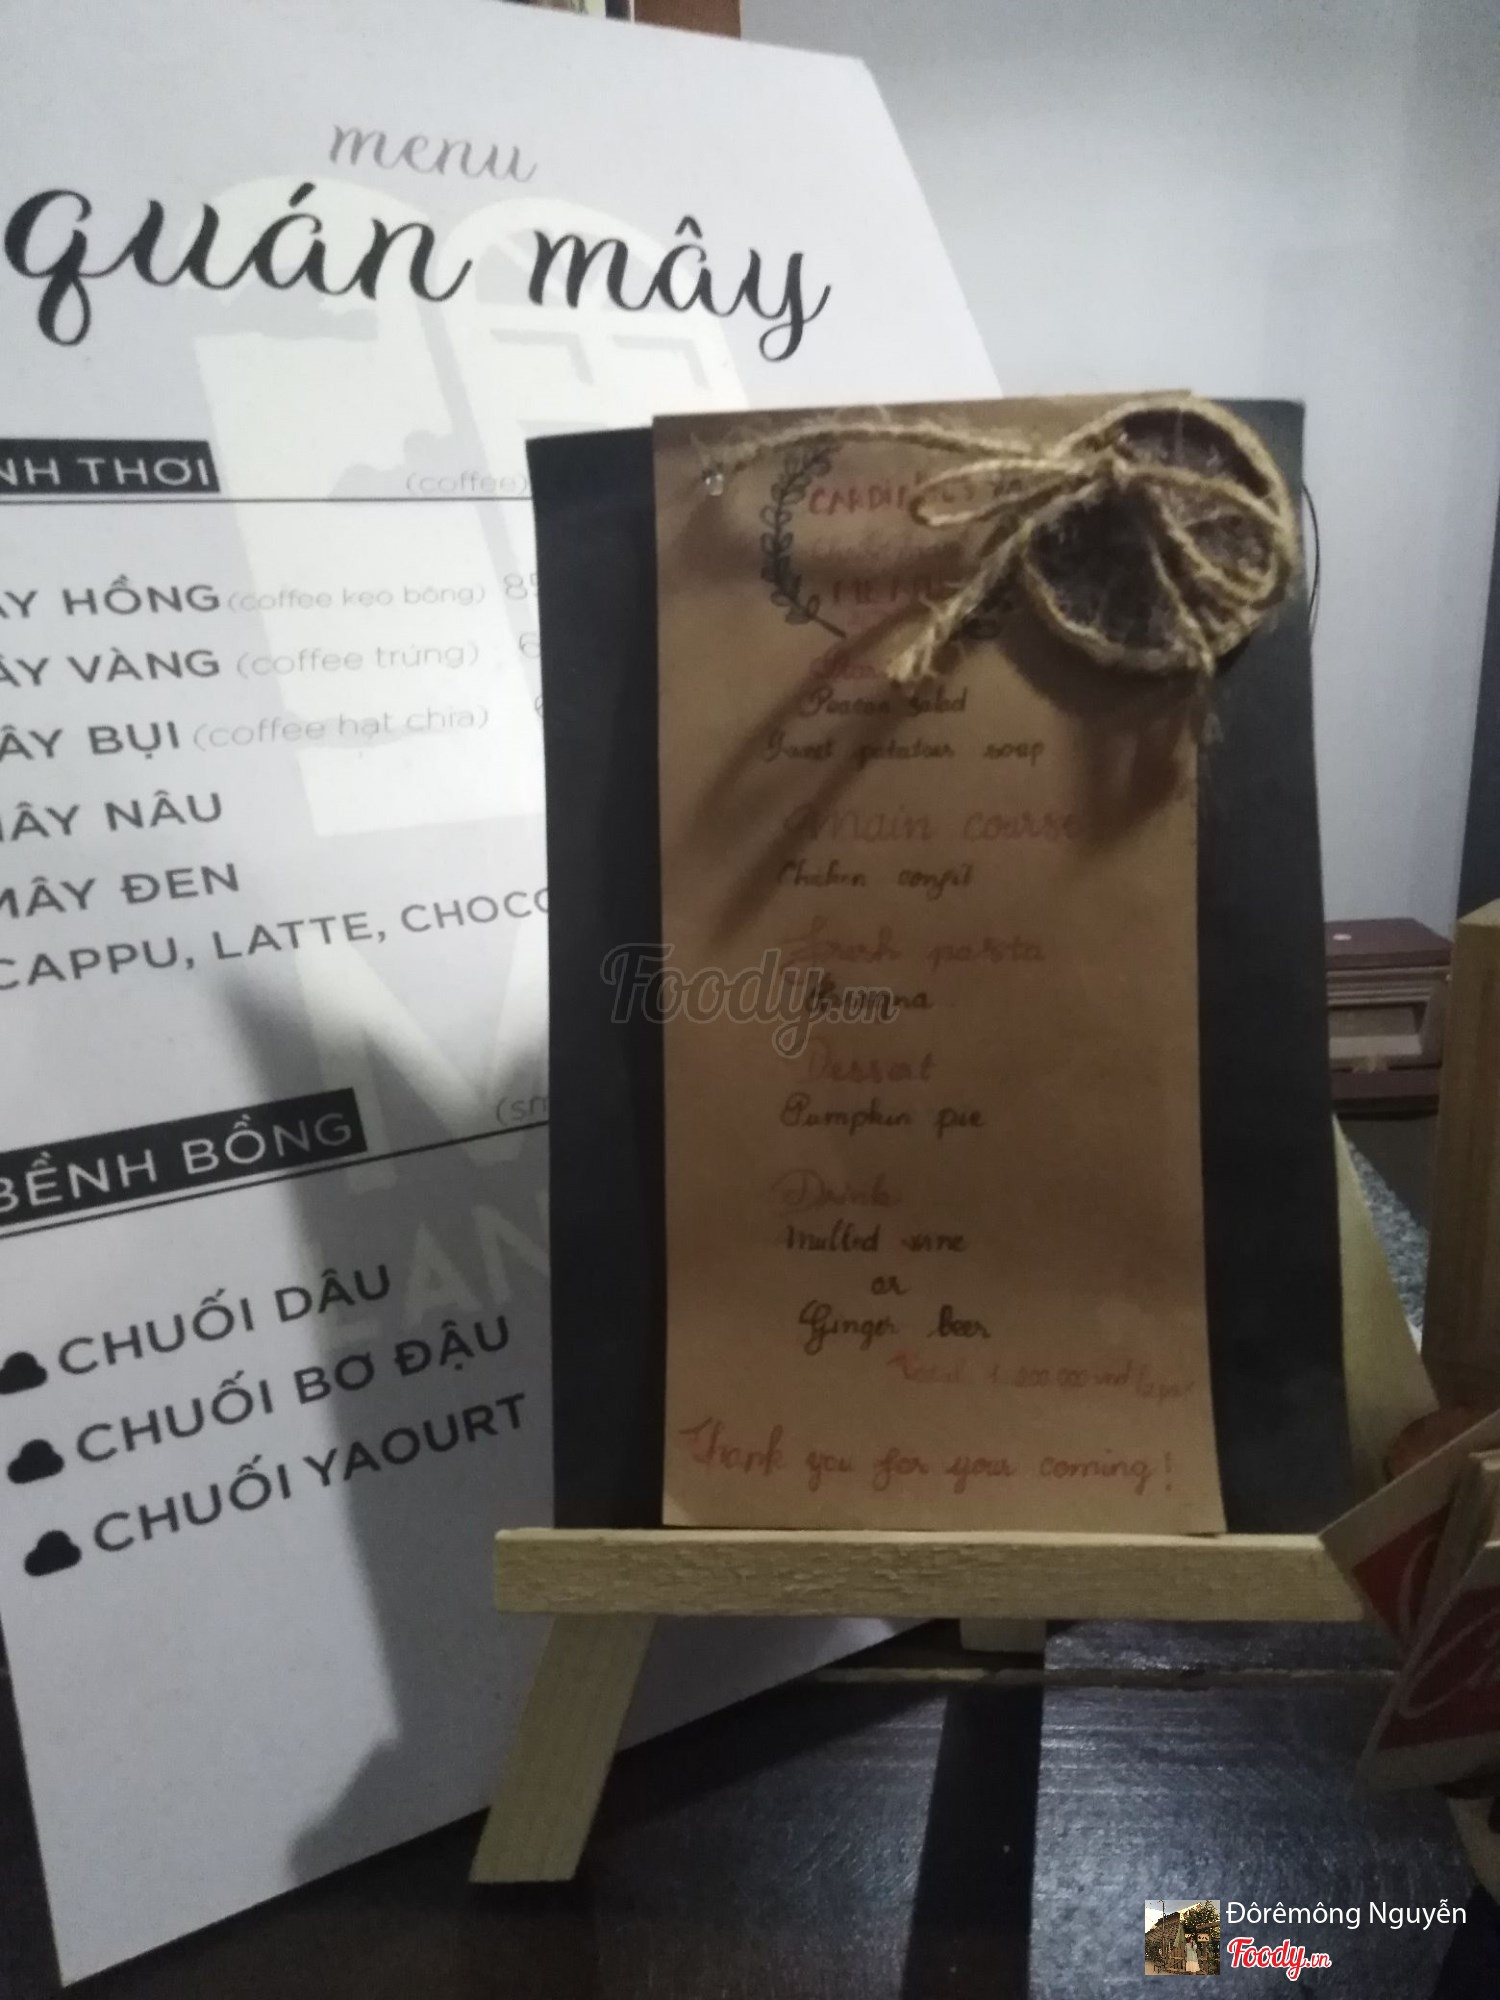 menu
quán mây
NH THƠI
(coffee)
ÂY HỒNG (coffee kẹo bông)
ÂY VÀNG (coffee trứng)
ÂY BỤI (coffee hạt chia)
ÂY NÂU
MÂY ĐEN
CAPPU, LATTE, CHOCO
BỀNH BỒNG
(sm
CHUỐI DÂU
CHUỐI BƠ ĐẬU
CHUỐI YAOURT
salad
soup
Main course
Chicken confit
Fresh pasta
Dessert
Pumpkin pie
Drink
Mulled wine
or
Ginger beer
Thank you for your coming!
Foody.vn
Đôrêmông Nguyễn
Foody.vn